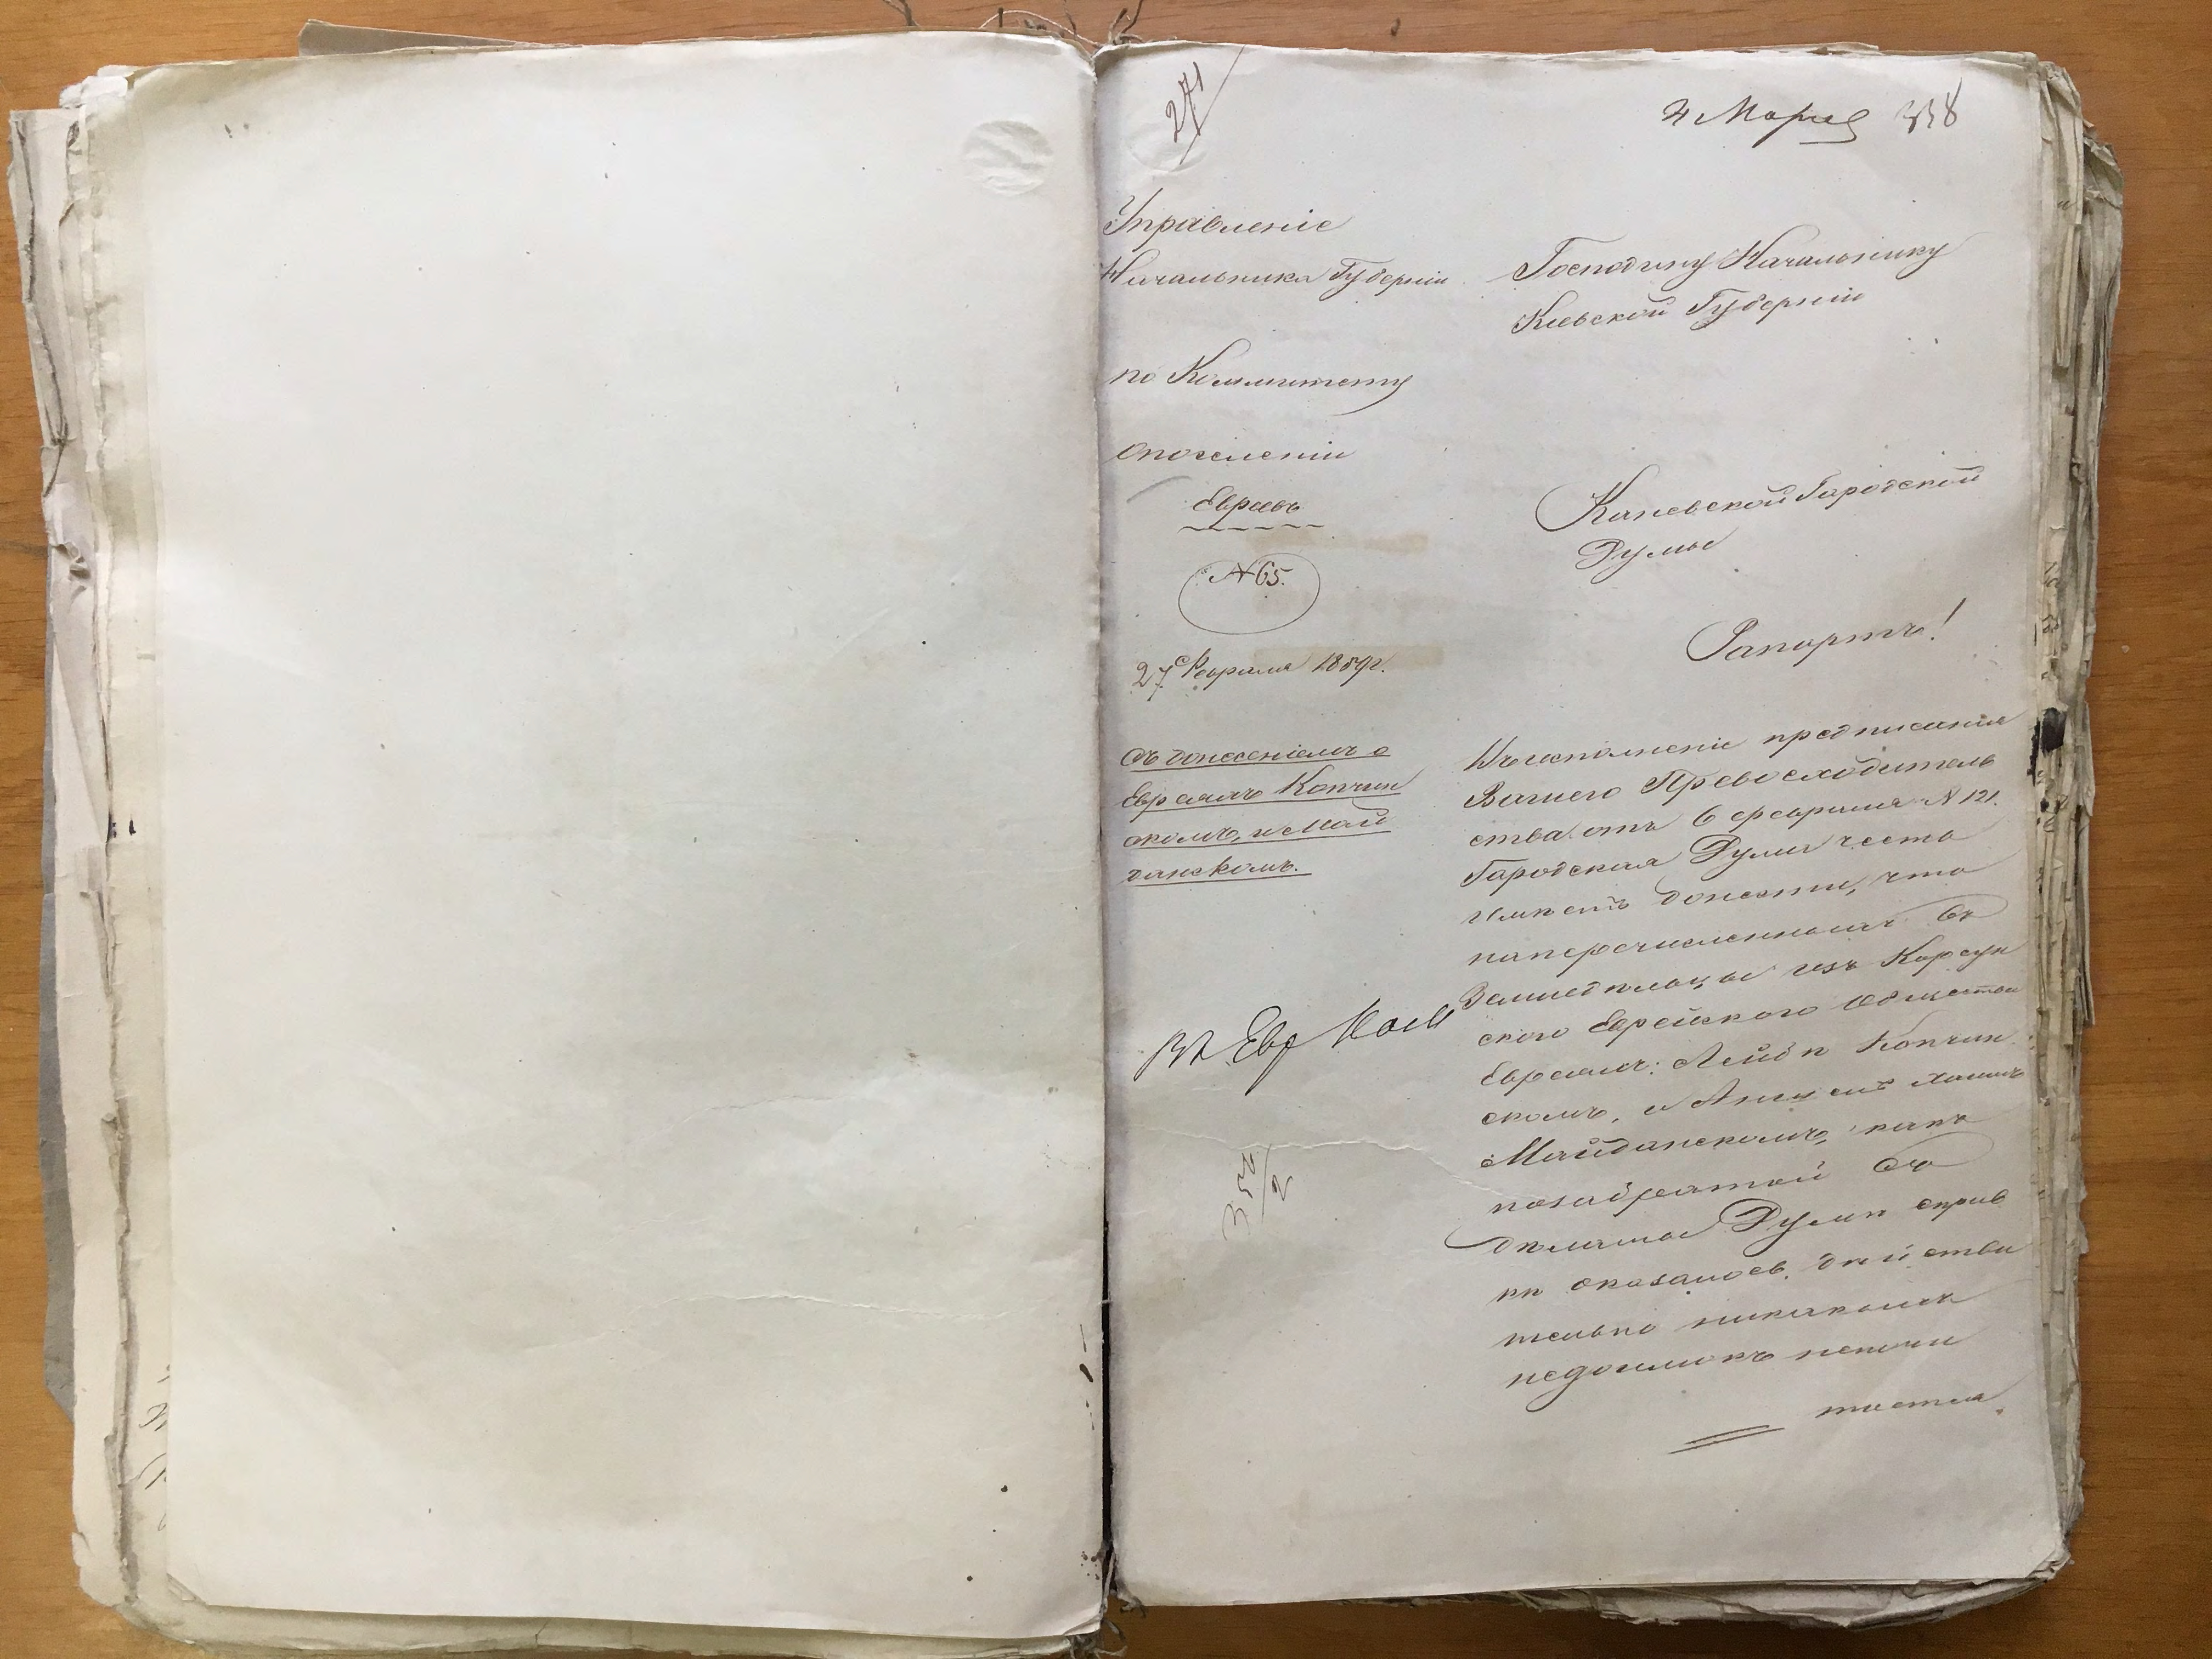 271
4 Марта 338
Управленіе
Начальника Губерніи
по Коммитету
о поселеніи
Евреевъ
№ 65.
27 Февраля 1859г.
Съ донесеніемъ о
Евреяхъ Копчин
скомъ, и Май
данскомъ.
Евр
354/2
Господину Начальнику
Кіевской Губерніи
Каневской Городской
Думы
Рапортъ!
Въ исполненіе предписанія
Вашего Превосходитель
ства отъ 6 февраля № 121.
Городская Дума честь
имѣетъ донести, что
на перечисленныхъ въ
Земледѣльцы изъ Корсун
ского Еврейского Общества
Евреяхъ: Лейбѣ Копчин
скомъ, и
Майданскомъ, какъ
по забратой въ
дѣлахъ Думы справ
кѣ оказалось, действи
тельно никакихъ
недоимокъ нечи
слится.